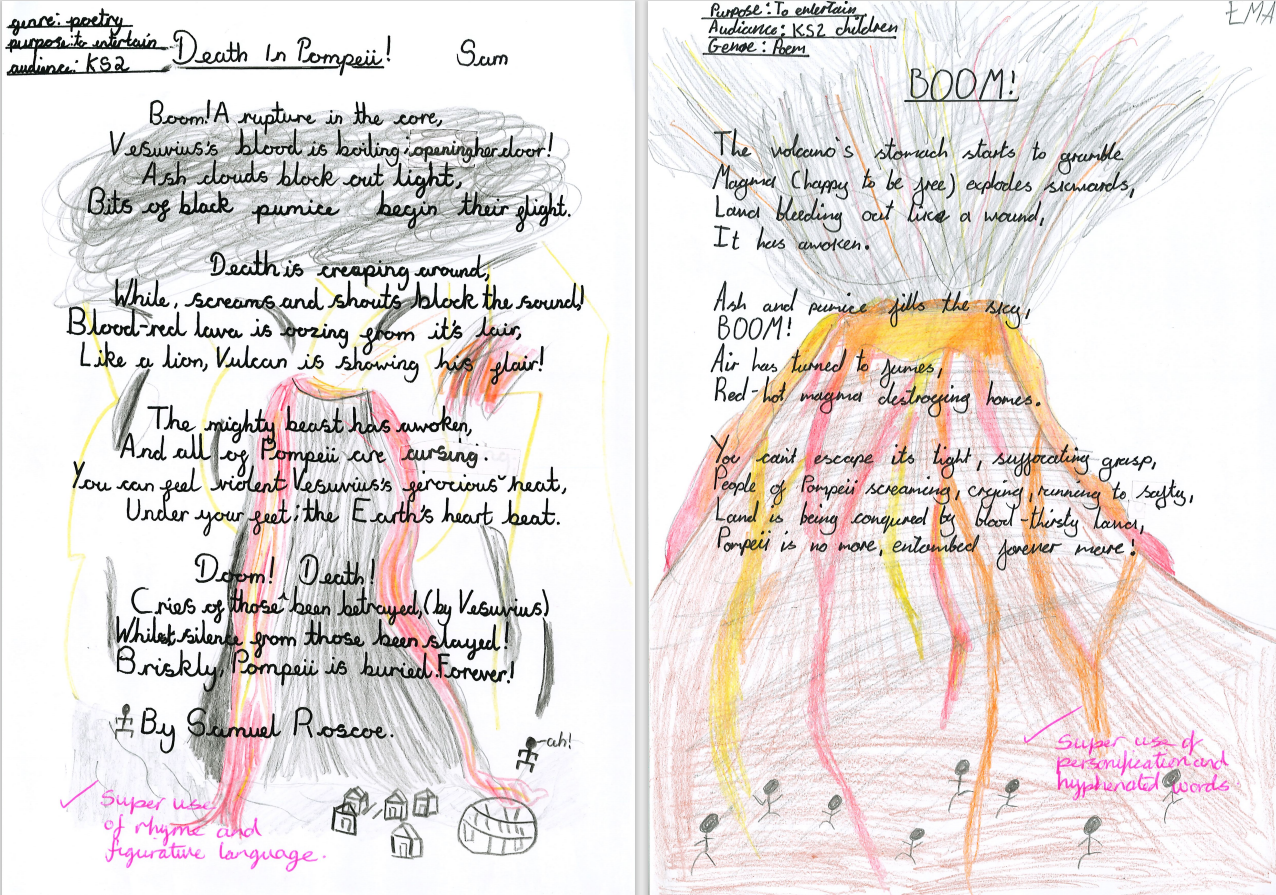 genre: poetry
purpose: to entertain
audience: KS2
Death In Pompeii!
Sam
Boom! A rupture in the core,
Vesuvius's blood is boiling: opening her door!
Ash clouds block out light,
Bits of black pumice begin their flight.
Death is creeping around,
While, screams and shouts block the sound!
Blood-red lava is oozing from it's lair,
Like a lion, Vulcan is showing his flair!
The mighty beast has awoken,
And all of Pompeii are cursing.
You can feel violent Vesuvius's ferocious heat,
Under your feet: the Earth's heart beat.
Doom! Death!
Cries of those been betrayed, (by Vesuvius)
Whilst, silence from those been slayed!
Briskly, Pompeii is buried. Forever!
By Samuel Roscoe.
ah!
Super use
of rhyme and
figurative language.
Purpose: To entertain
Audiance: KS2 children
Genre: Poem
EMA
BOOM!
The volcano's stomach starts to grumble
Magma (happy to be free) explodes skywards,
Land bleeding out like a wound,
It has awoken.
Ash and pumice fills the sky,
BOOM!
Air has turned to fumes,
Red-hot magma destroying homes.
You can't escape its tight, suffocating grasp,
People of Pompeii screaming, crying, running to safty,
Land is being conqured by blood-thirsty land,
Pompeii is no more, entombed forever more!
Super use of
personification and
hyphenated words